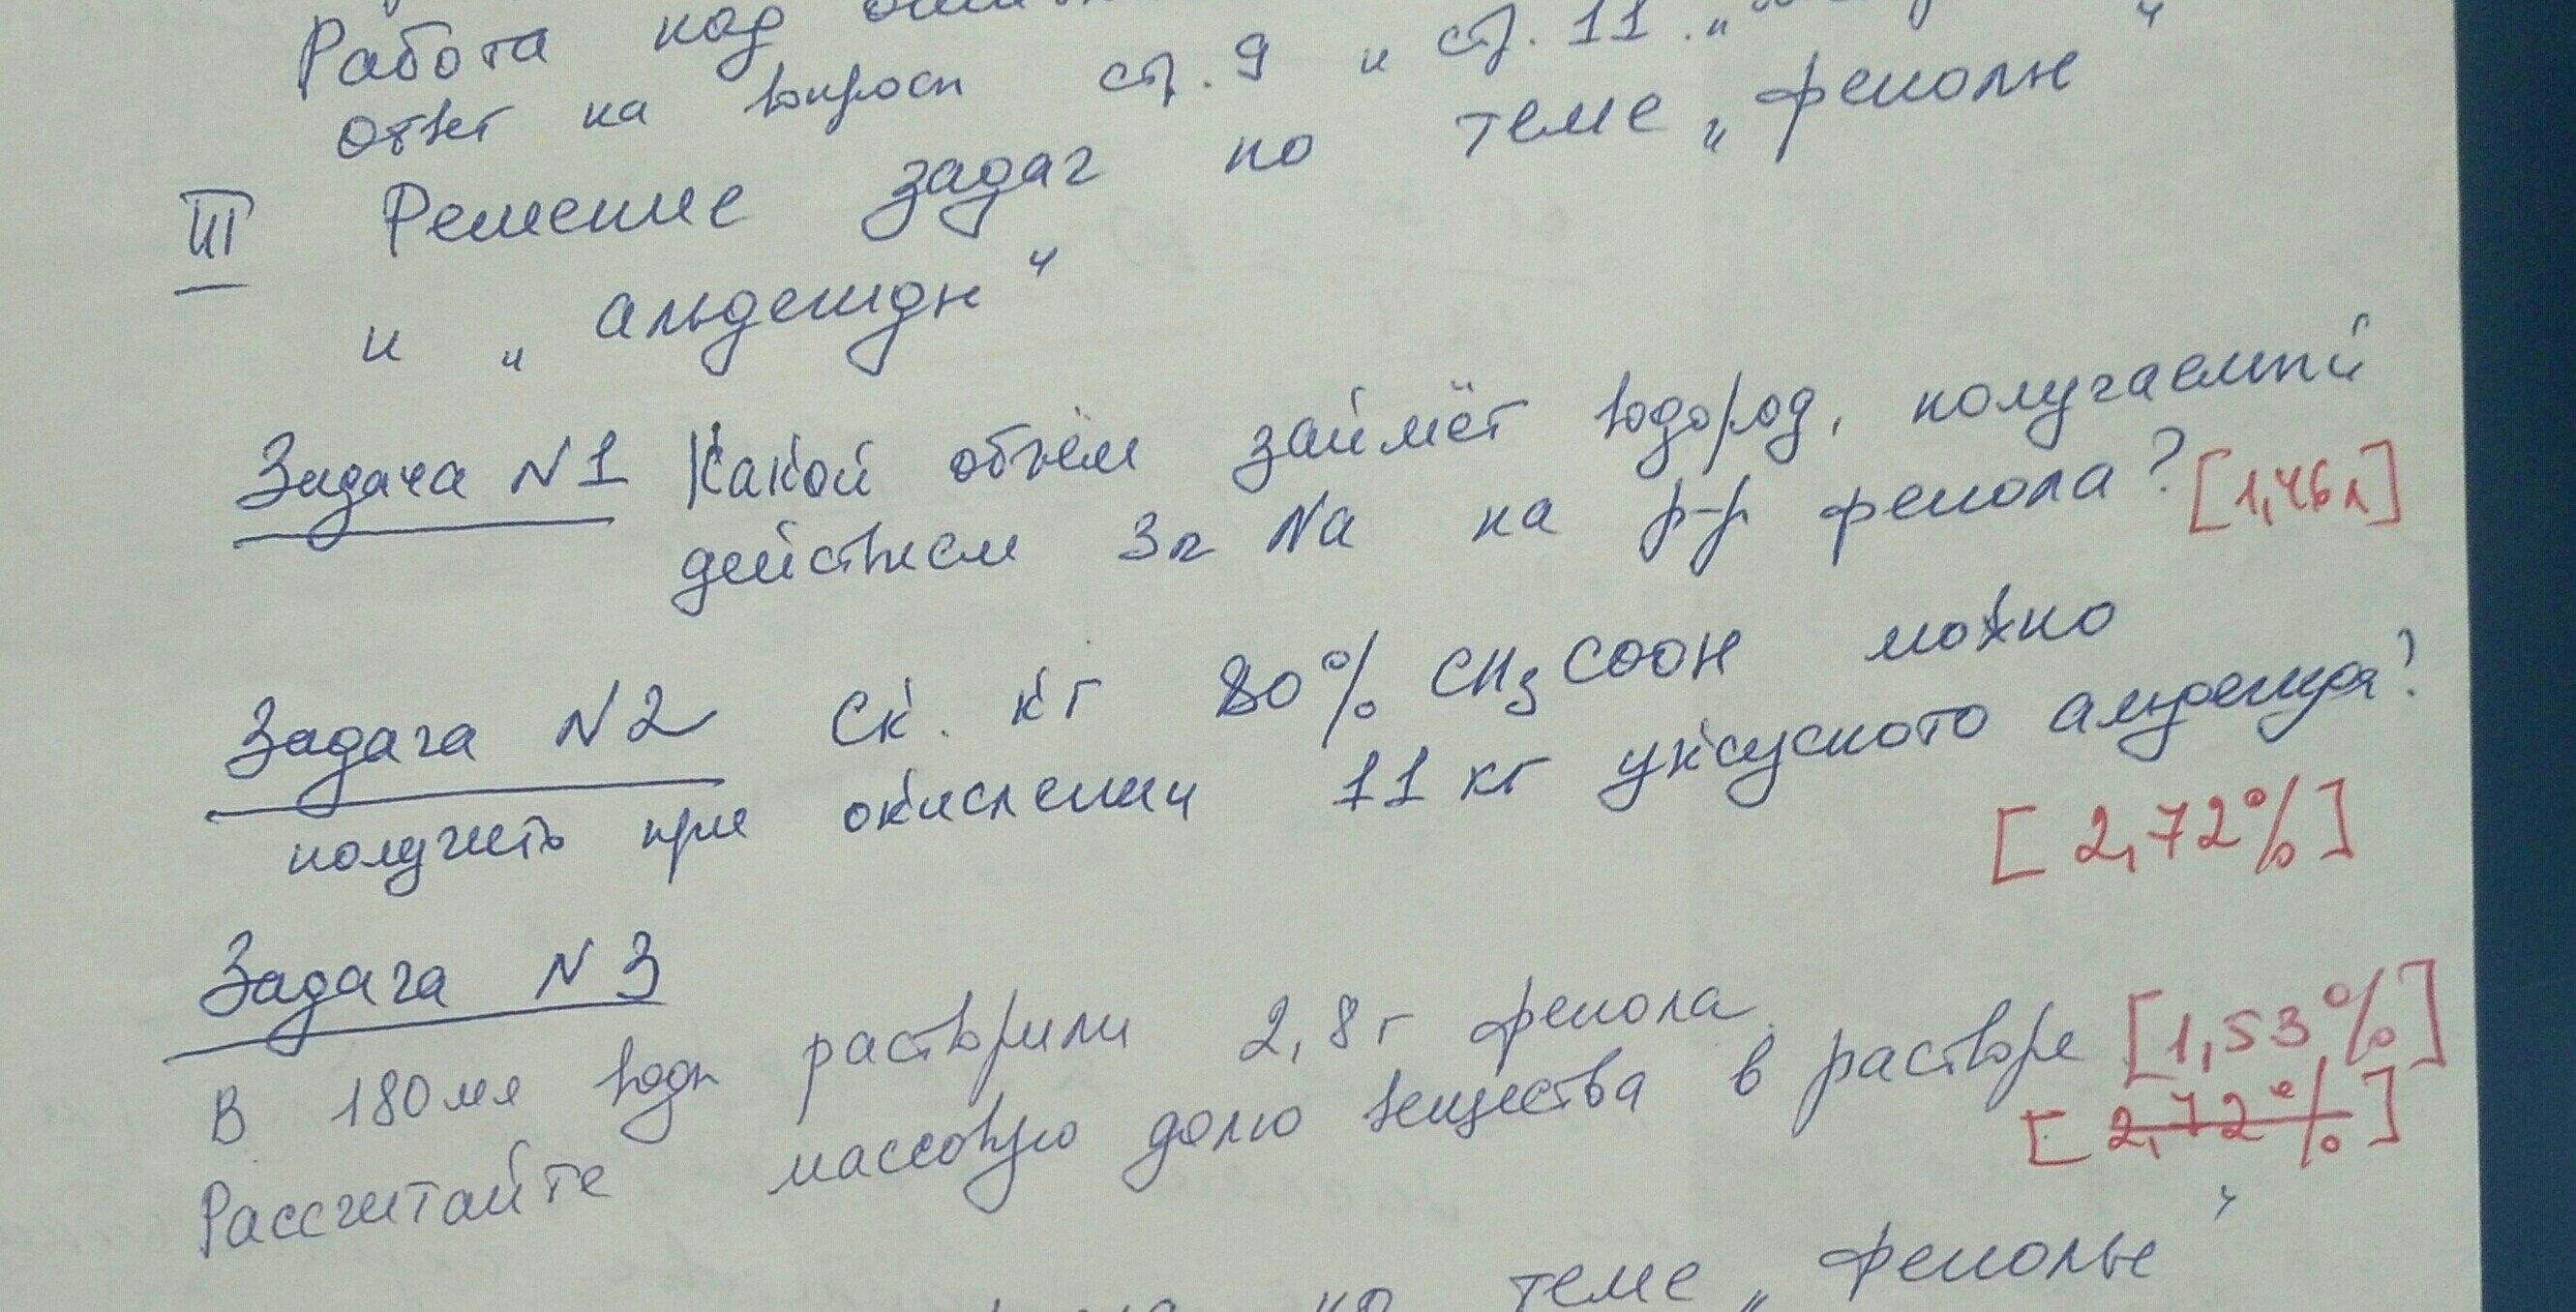 Работа над
Ответ на вопросы стр. 9 и стр. 11. „
III Решение задач по теме „фенолы“
и „альдегиды“
Задача N1 Какой объём займёт водород, получаемый
действием 3г Na на р-р фенола? [1,46л]
Задача N2 Ск. кг 80% CH3COOH можно
получить при окислении 11 кг уксусного альдегида?
[2,72%]
Задача N3
В 180мл воды растворили 2,8г фенола.
Рассчитайте массовую долю вещества в растворе [1,53%]
[2,72%]
по теме „фенолы“